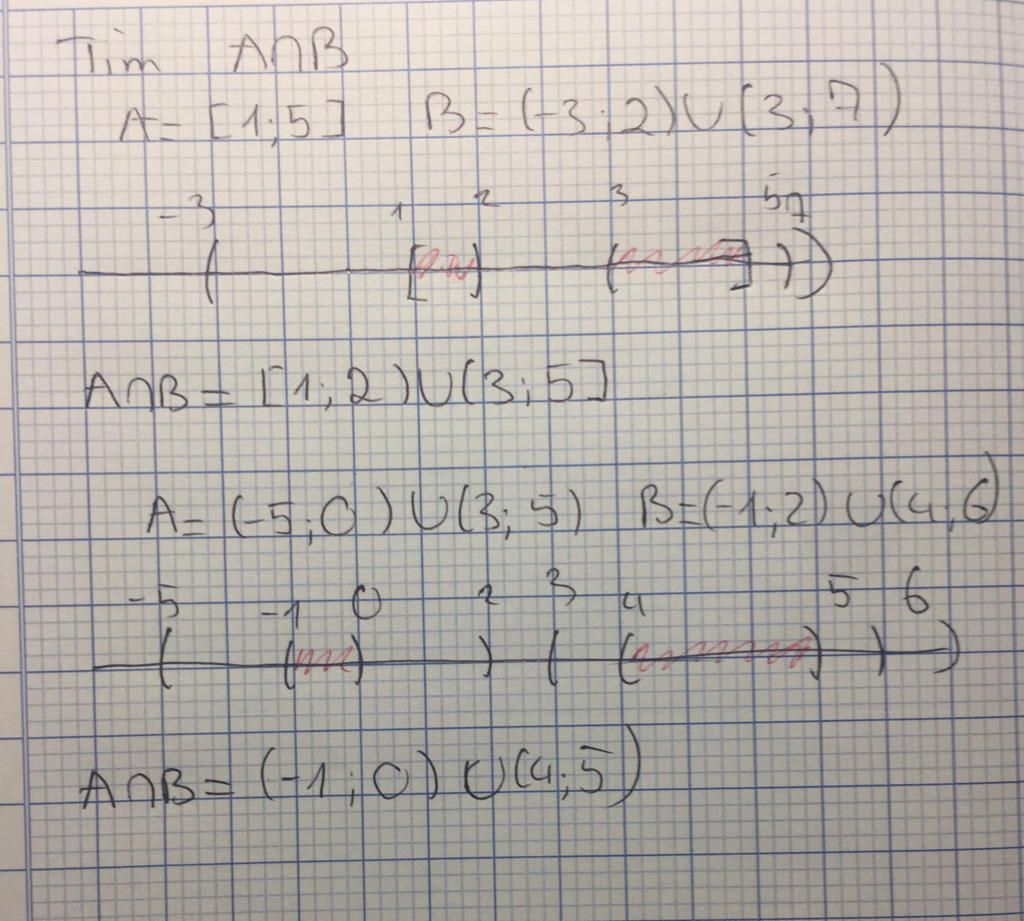 Tim A∩B
A= [1;5] B= (-3;2)∪(3;7)
-3 1 2 3 5 7
A∩B = [1;2)∪(3;5]
A= (-5;0)∪(3;5) B=(-1;2)∪(4;6)
-5 -1 0 2 3 4 5 6
A∩B= (-1;0)∪(4;5)